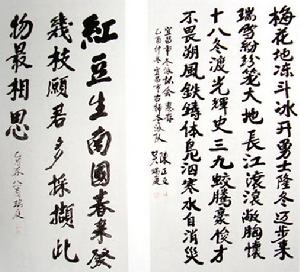 梅花地冻斗冰开勇士隆冬迈步来
瑞雪纷纷笼大地长江滚滚敞胸怀
十八冬波光辉史三九蛟腾豪俊才
不畏朔风铁铸体凫泅寒水自消災
宜昌市冬泳协会惠存
紅豆生南國春来發
幾枝願君多採擷此
物最相思